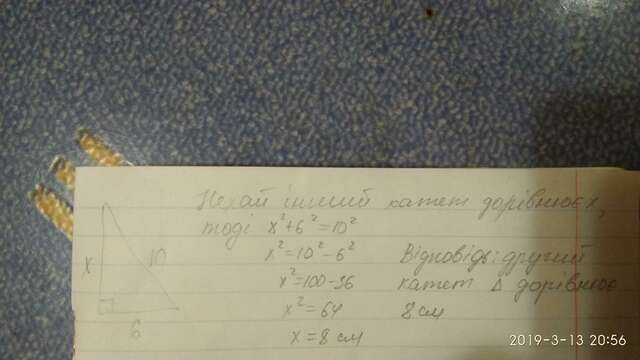 Нехай інший катет дорівнює х,
тоді x²+6²=10²
x²=10²-6²
x²=100-36
x²=64
x=8 см
Відповідь: другий
катет Δ дорівнює
8 см
x
10
6
2019-3-13 20:56